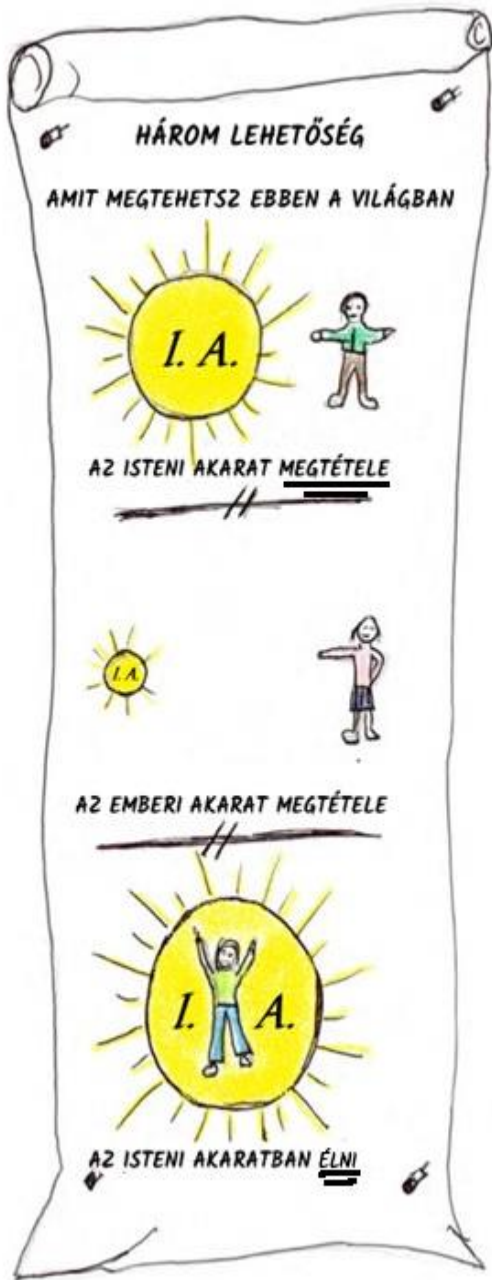 HÁROM LEHETŐSÉG
AMIT MEGTEHETSZ EBBEN A VILÁGBAN
I. A.
AZ ISTENI AKARAT MEGTÉTELE
I. A.
AZ EMBERI AKARAT MEGTÉTELE
I. A.
AZ ISTENI AKARATBAN ÉLNI